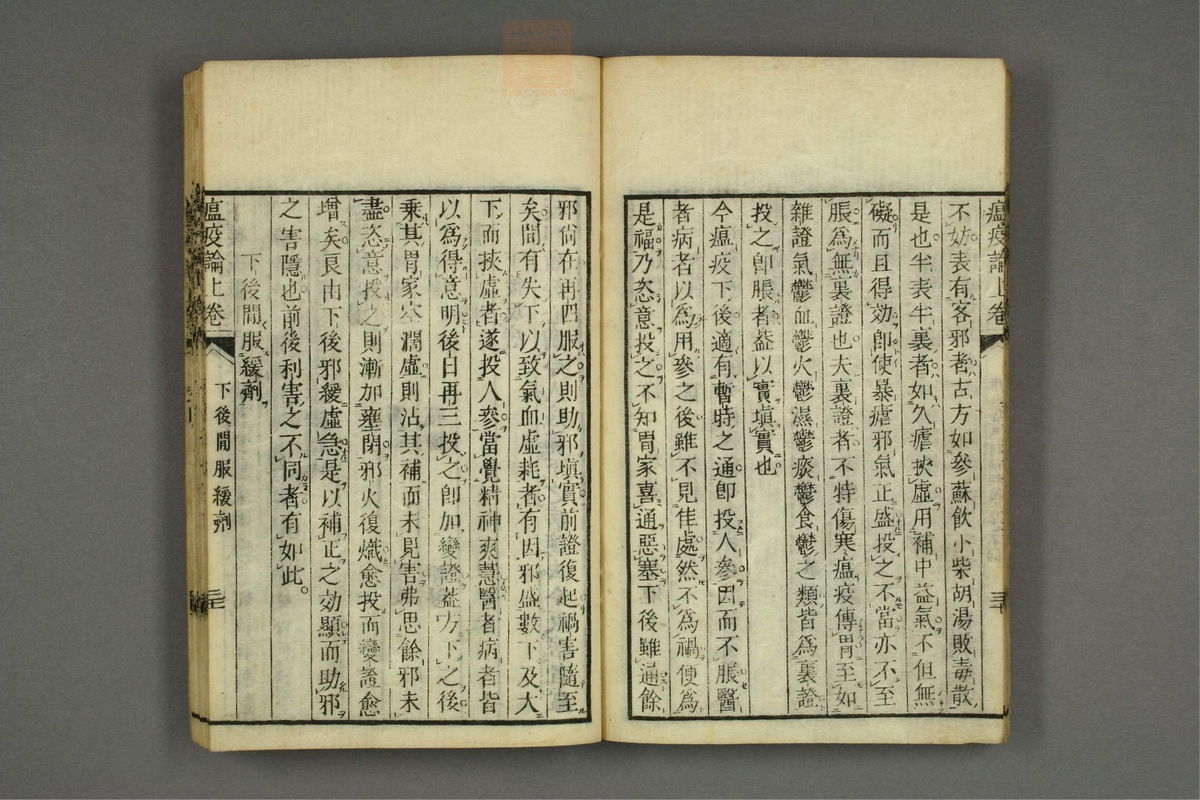 瘟疫論上卷
不妨表有客邪者古方如參蘇飲小柴胡湯敗毒散
是也半表半裏者如久瘧挾虛用補中益氣不但無
礙而且得効即使暴瘧邪氣正盛投之不當亦不至
脹為無裏證也夫裏證者不特傷寒瘟疫傳胃至如
雜證氣鬱血鬱火鬱濕鬱痰鬱食鬱之類皆為裏證
投之即脹者蓋以實填實也
今瘟疫下後適有暫時之通即投人參因而不脹醫
者病者以為用參之後雖不見佳處然不為禍便為
是福乃恣意投之不知胃家喜通惡塞下後雖通餘
邪尚在再四服之則助邪填實前證復起禍害隨至
矣間有失下以致氣血虛耗者有因邪盛數下及大
下而挾虛者遂投人參當覺精神爽慧醫者病者皆
以為得意明後日再三投之即加變證蓋方下之後
乘其胃家乍濶虛則沾其補而未見害弗思餘邪未
盡恣意投之則漸加壅閉邪火復熾愈投而變證愈
增矣良由下後邪緩虛急是以補正之効顯而助邪
之害隱也前後利害之不同者有如此。
下後間服緩劑
瘟疫論上卷
下後間服緩劑